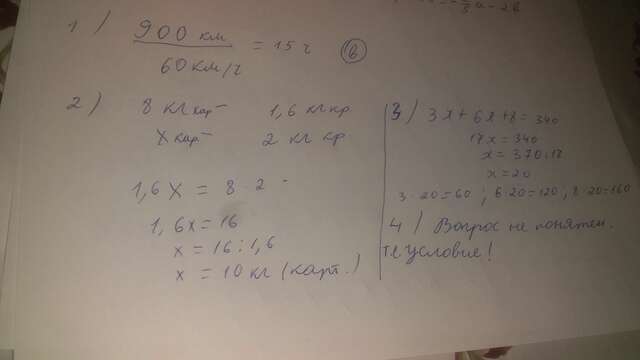 1) 900 км / 60 км/ч = 15 ч (в)
2) 8 кг кар – 1,6 кг кр
х кар – 2 кг кр
1,6 х = 8 · 2
1,6х = 16
х = 16 : 1,6
х = 10 кг (карт.)
3) 3х + 6х + 8 = 340
17х = 340
х = 370:17
х = 20
3·20=60 ; 6·20=120 ; 8·20=160
4) Вопрос не понятен.
т.е. условие!